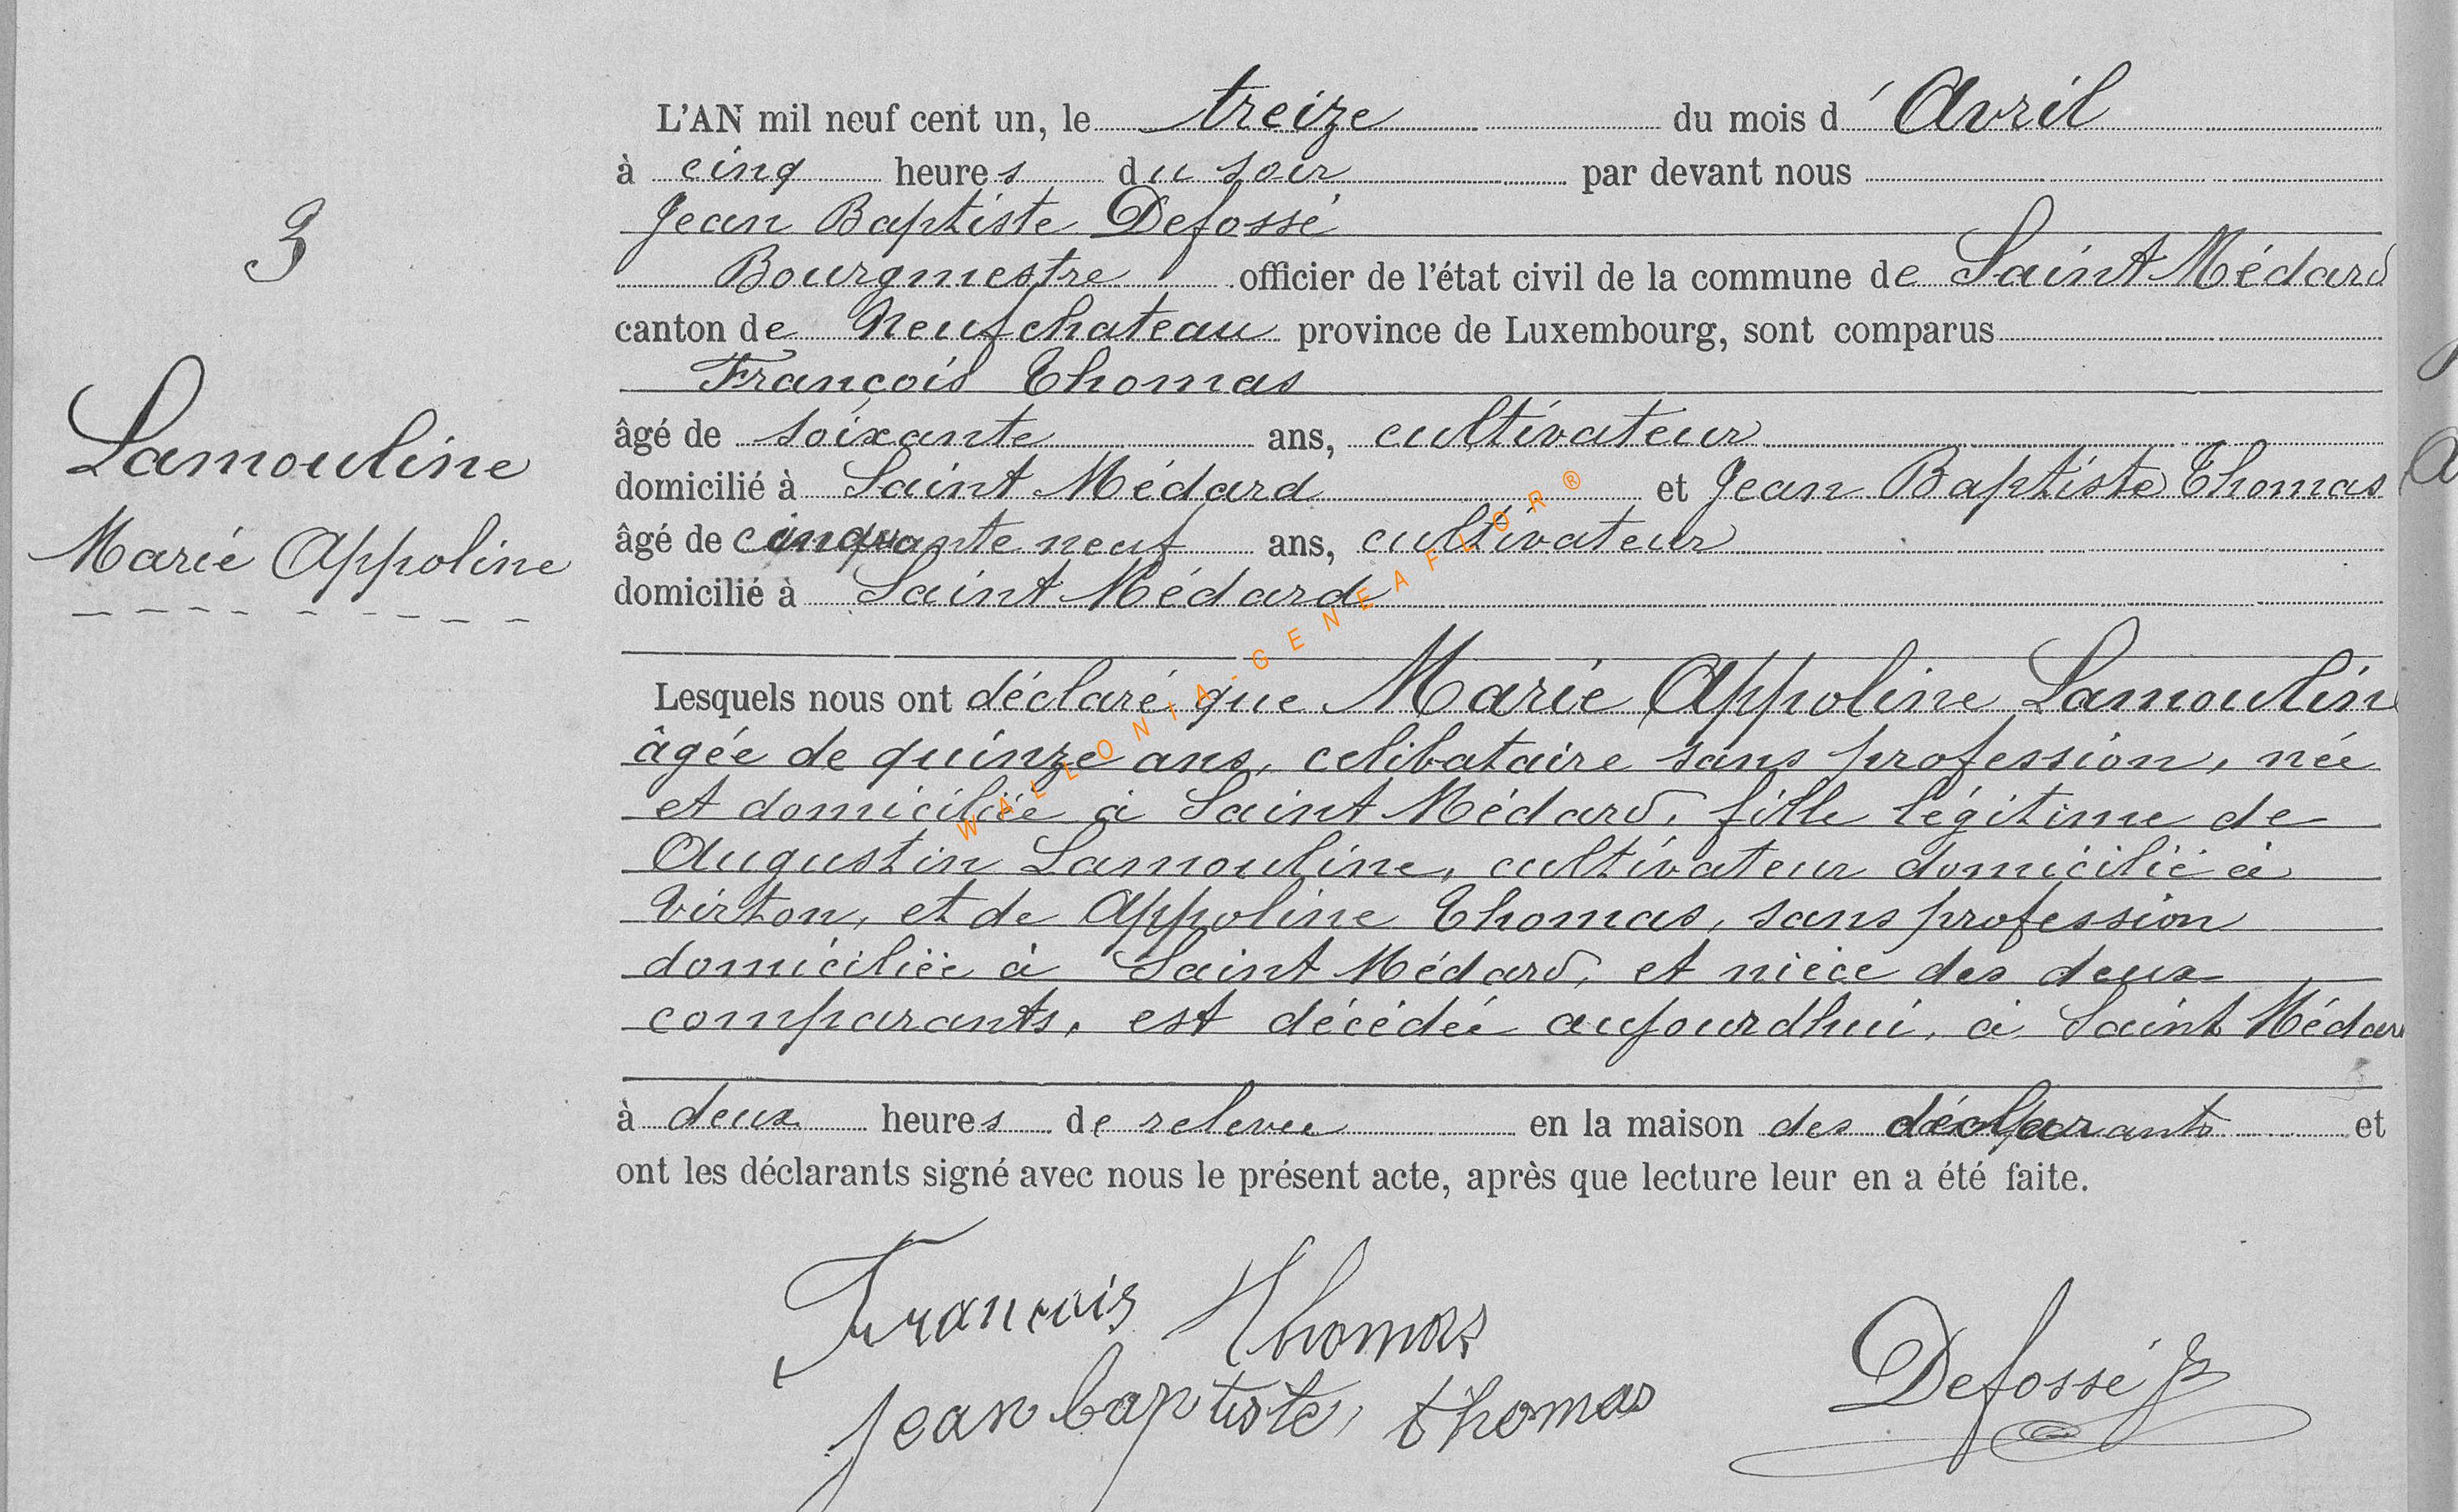 3
Lamouline
Marie Appoline
L'AN mil neuf cent un, le treize du mois d'Avril
à cinq heures du soir par devant nous
Jean Baptiste Defossé
Bourgmestre officier de l'état civil de la commune de Saint Médard
canton de Neufchateau province de Luxembourg, sont comparus
François Thomas
âgé de soixante ans, cultivateur
domicilié à Saint Médard et Jean Baptiste Thomas
âgé de cinquante neuf ans, cultivateur
domicilié à Saint Médard
Lesquels nous ont déclaré que Marie Appoline Lamouline
âgée de quinze ans, celibataire sans profession, née
et domiciliée à Saint Médard, fille légitime de
Augustin Lamouline, cultivateur domicilié à
Virton, et de Appoline Thomas, sans profession
domiciliée à Saint Médard, et nièce des deux
comparants, est décédée aujourdhui, à Saint Médard
à deux heures de relevee en la maison des déclarants et
ont les déclarants signé avec nous le présent acte, après que lecture leur en a été faite.
Francois Thomas
jean baptiste thomas
Defossé
WALLONIA-GENEAFLOR®